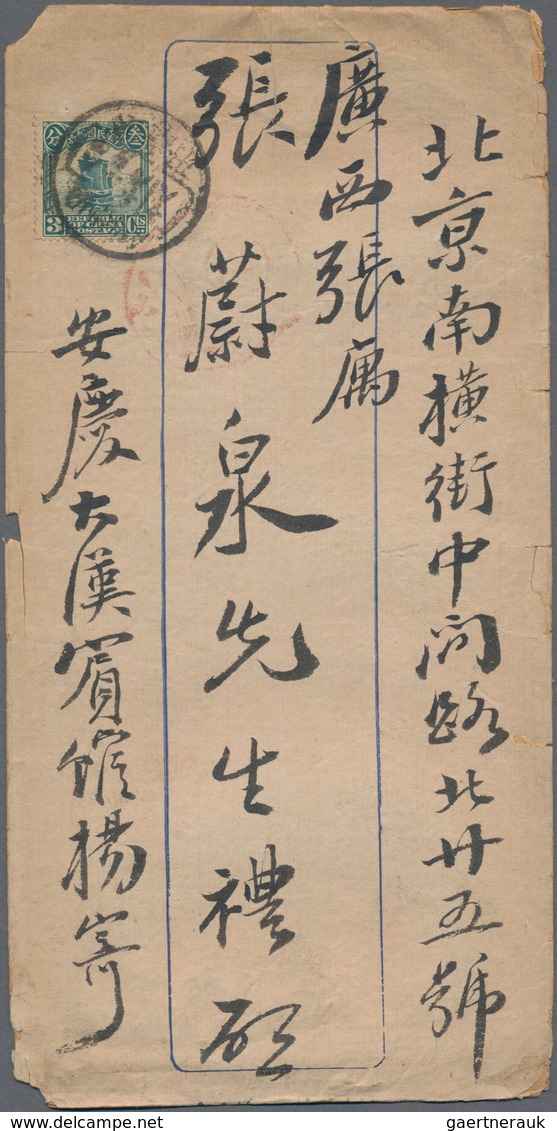 北京南橫街中間路北廿五號
廣西張寓
張蔚泉先生禮啟
安慶大漢賓館楊寄
中華民國郵政
叁
分
3
Cts
REPUBLIC
OF CHINA
POSTAGE
gaertnerauk